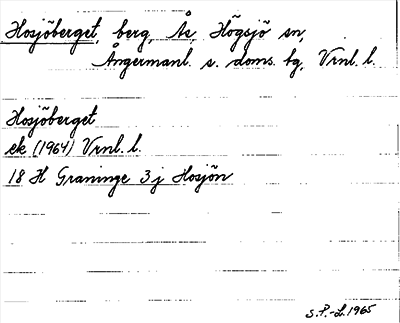 Hosjöberget, berg, Ås, Högsjö sn,
Ångermanl. s. doms. tg, Vrnl. l.
Hosjöberget
ek (1964) Vrnl. l.
18 H Graninge 3 j Hosjön
S.P.-L. 1965